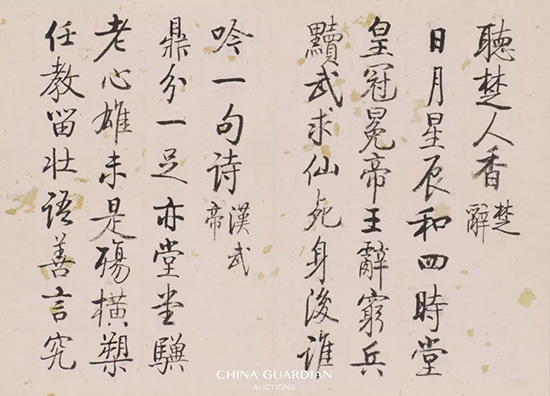 聽楚人香楚辭
日月星辰和四時堂
皇冠冕帝王辭窮兵
黷武求仙死身後誰
吟一句詩漢武帝
鼎分一足亦堂堂驥
老心雄未是殤橫槊
任教留壯語善言究
CHINA GUARDIAN
AUCTIONS